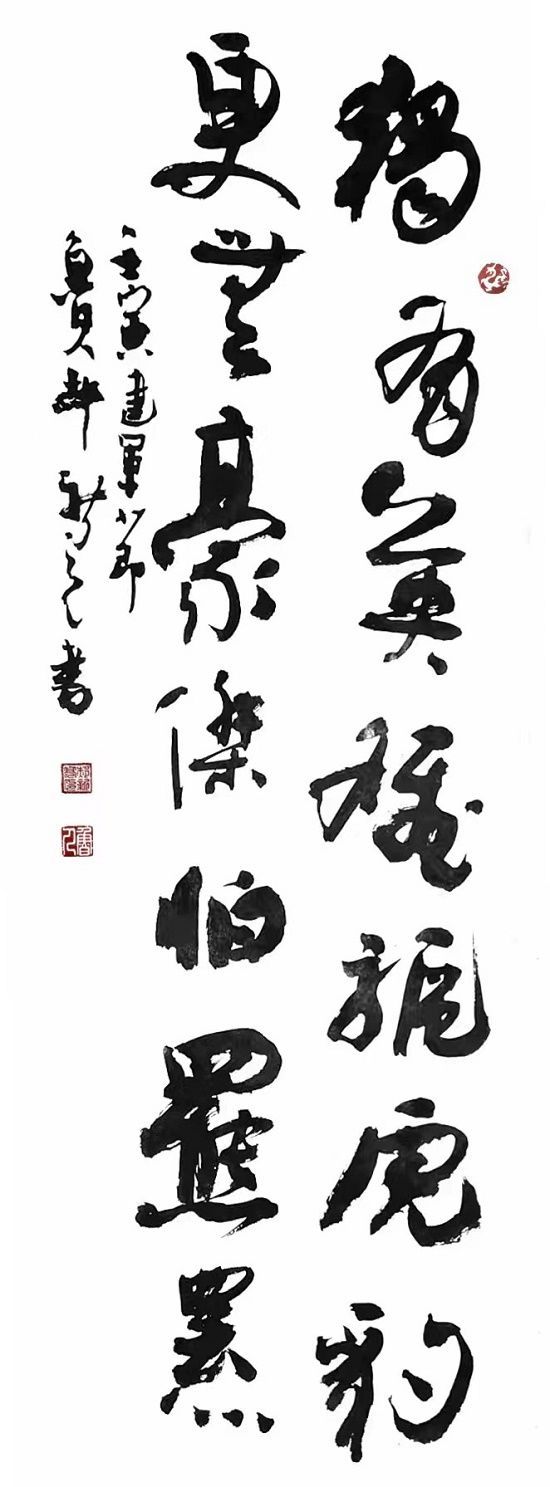 獨有英雄驅虎豹
更無豪傑怕羆羆
壬寅建軍節
魯人郝書